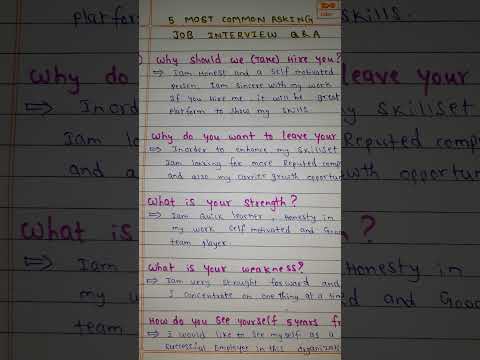 5 MOST COMMON ASKING
JOB INTERVIEW Q & A
Why should we (Take) Hire you?
⇒ Iam Honest and a self motivated
person. Iam sincere with my work
If you Hire me it will be great
Platform to show my skills.
Why do you want to leave your
⇒ Inorder to enhance my skillset
Iam looking for more Reputed comp
and also my carrier growth opportun
What is your strength?
⇒ Iam Quick learner, Honesty in
my work self motivated and Good
team player.
What is your weakness?
⇒ Iam very straight forward and
I concentrate on one thing at a time
How do you see yourself 5 years f
⇒ I would like to see myself as a
successful Employee in this organiza